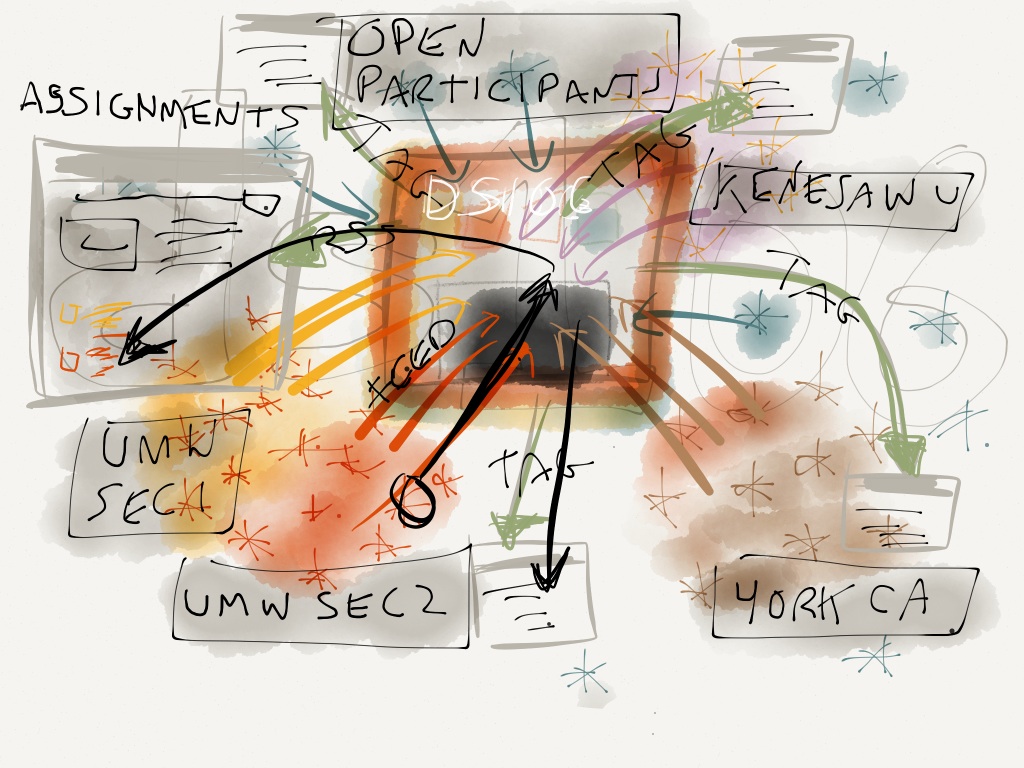 OPEN
PARTICIPANTS
ASSIGNMENTS
TAG
TAG
DS106
KENESAW U
RSS
TAG
FEED
UMW
SEC1
TAG
UMW SEC2
YORK CA